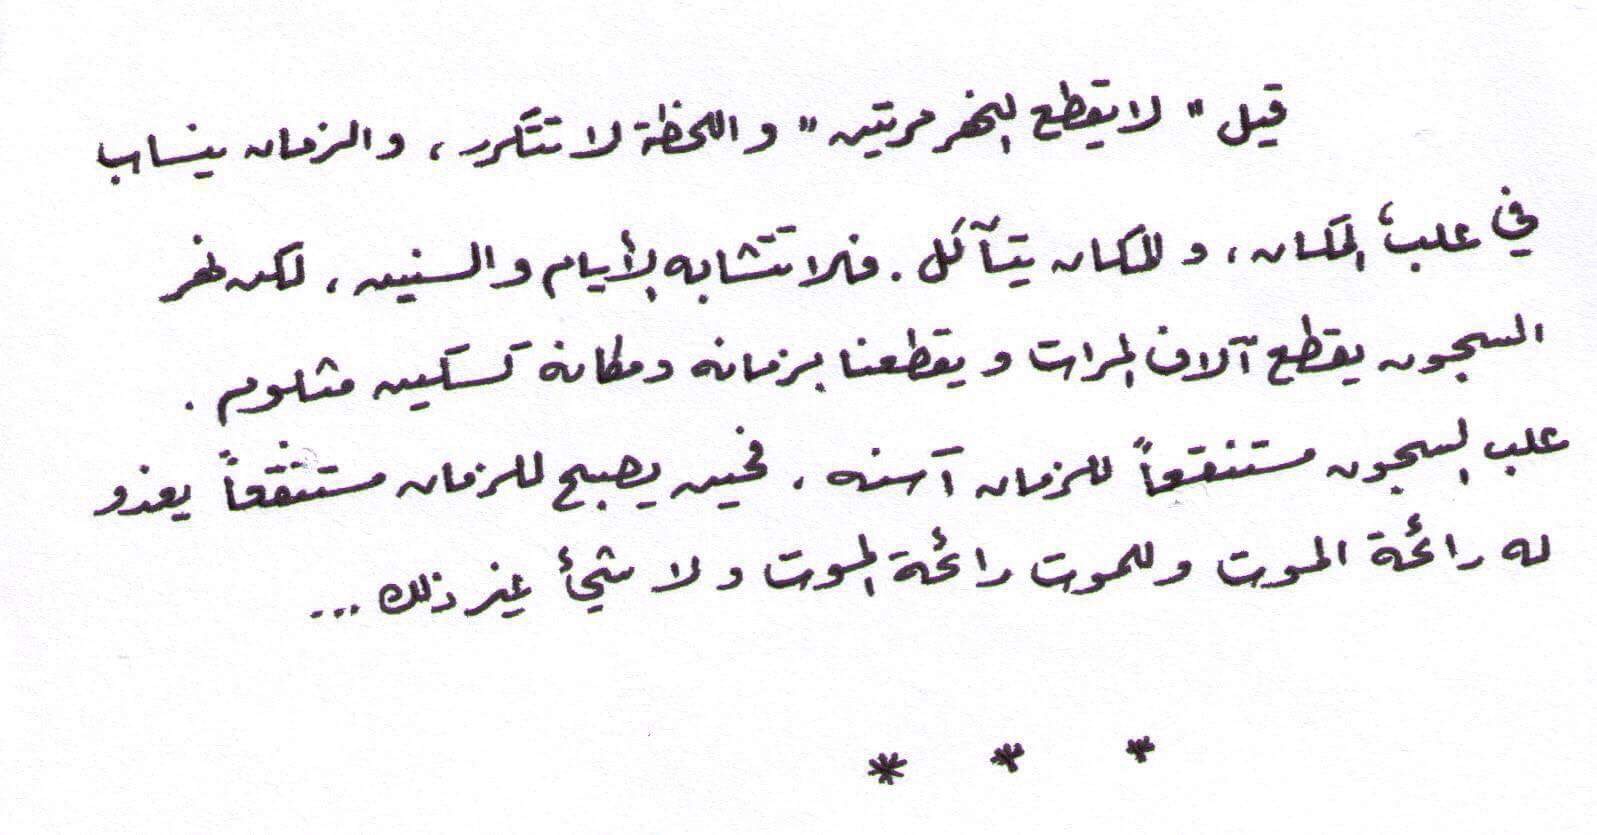 قيل " لا يقطع النهر مرتين " واللحظة لا تتكرر ، والزمان ينساب
في علب المكان ، والمكان يتآكل . فلا تتشابه الأيام والسنين ، لكن نهر
السجون يقطع آلاف المرات ويقطعنا بزمانه ومكانه كسكين مثلوم .
علب السجون مستنقعاً للزمان آسنه ، فحين يصبح للزمان مستنقعاً يغذو
له رائحة الموت وللموت رائحة الموت ولا شيئ غير ذلك ...
* * *